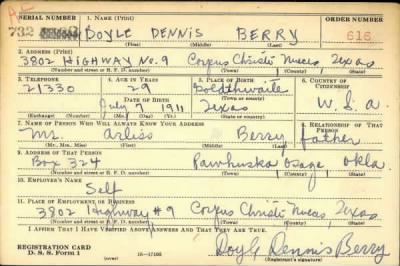 SERIAL NUMBER 1. NAME (Print) ORDER NUMBER
732 DOYLE DENNIS BERRY 616
(First) (Middle) (Last)
2. ADDRESS (Print)
3802 HIGHWAY No. 9 Corpus Christi Nueces Texas
(Number and street or R. F. D. number) (Town) (County) (State)
3. TELEPHONE 4. AGE IN YEARS 5. PLACE OF BIRTH 6. COUNTRY OF CITIZENSHIP
21330 29 Goldthwaite
DATE OF BIRTH (Town or county)
July 1911 Texas U.S.a.
(Exchange) (Number) (Mo.) (Day) (Yr.) (State or country)
7. NAME OF PERSON WHO WILL ALWAYS KNOW YOUR ADDRESS 8. RELATIONSHIP OF THAT PERSON
Mr. Arliss Berry father
(Mr., Mrs., Miss) (First) (Middle) (Last)
9. ADDRESS OF THAT PERSON
Box 324 Pawhuska Osage Okla.
(Number and street or R. F. D. number) (Town) (County) (State)
10. EMPLOYER'S NAME
Self
11. PLACE OF EMPLOYMENT OR BUSINESS
3802 Highway #9 Corpus Christi Nueces, Texas
(Number and street or R. F. D. number) (Town) (County) (State)
I AFFIRM THAT I HAVE VERIFIED ABOVE ANSWERS AND THAT THEY ARE TRUE.
REGISTRATION CARD
D. S. S. Form 1 Doyle Dennis Berry
(Registrant's signature)